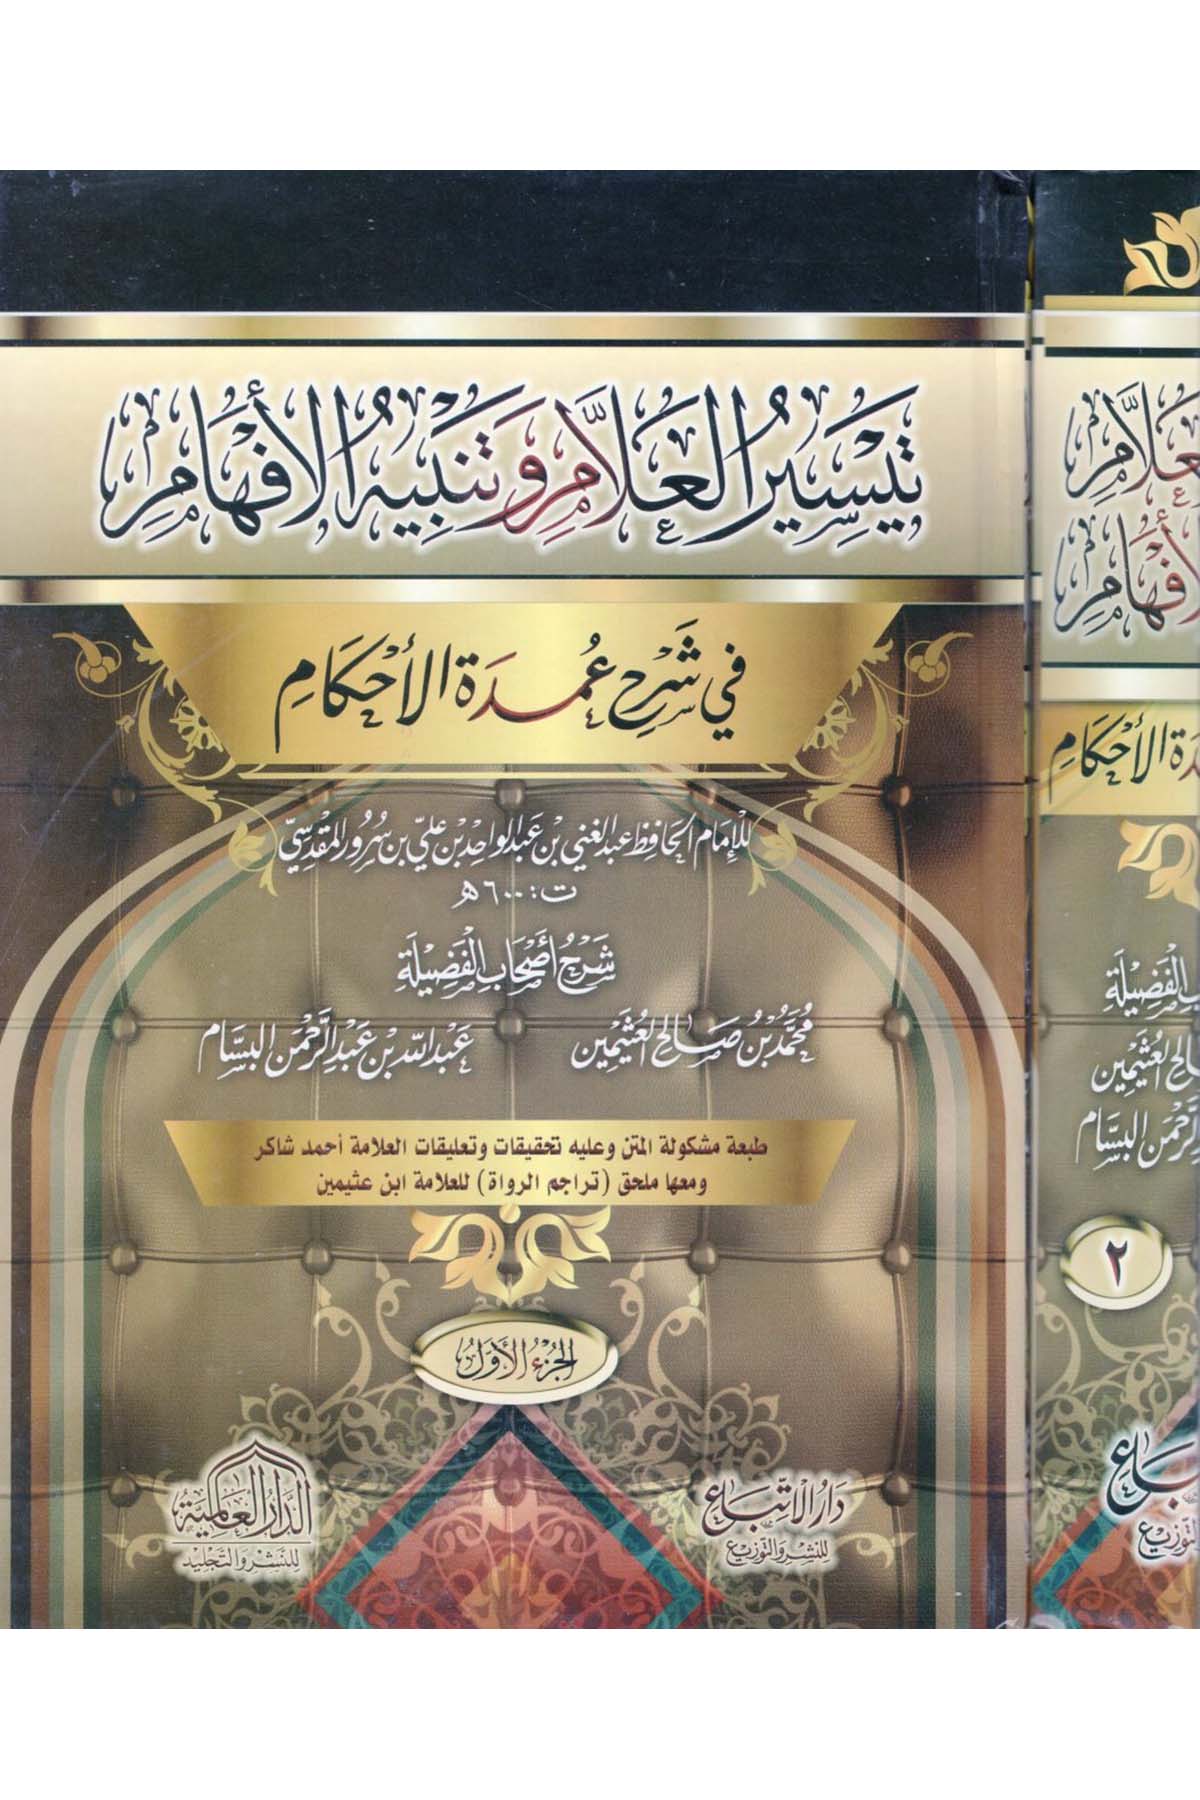 تيسير العلام وتنبيه الأفهام
في شرح عمدة الأحكام
للإمام الحافظ عبد الغني بن عبد الواحد بن علي بن سرور المقدسي
ت: ٦٠٠هـ
شرح أصحاب الفضيلة
محمد بن صالح العثيمين
عبد الله بن عبد الرحمن البسام
طبعة مشكولة المتن وعليه تحقيقات وتعليقات العلامة أحمد شاكر
ومعها ملحق (تراجم الرواة) للعلامة ابن عثيمين
الجزء الأول
دار الاتباع
للنشر والتوزيع
الدار العالمية
للنشر والتجليد
الأحكام
الفضيلة
العثيمين
البسام
٢